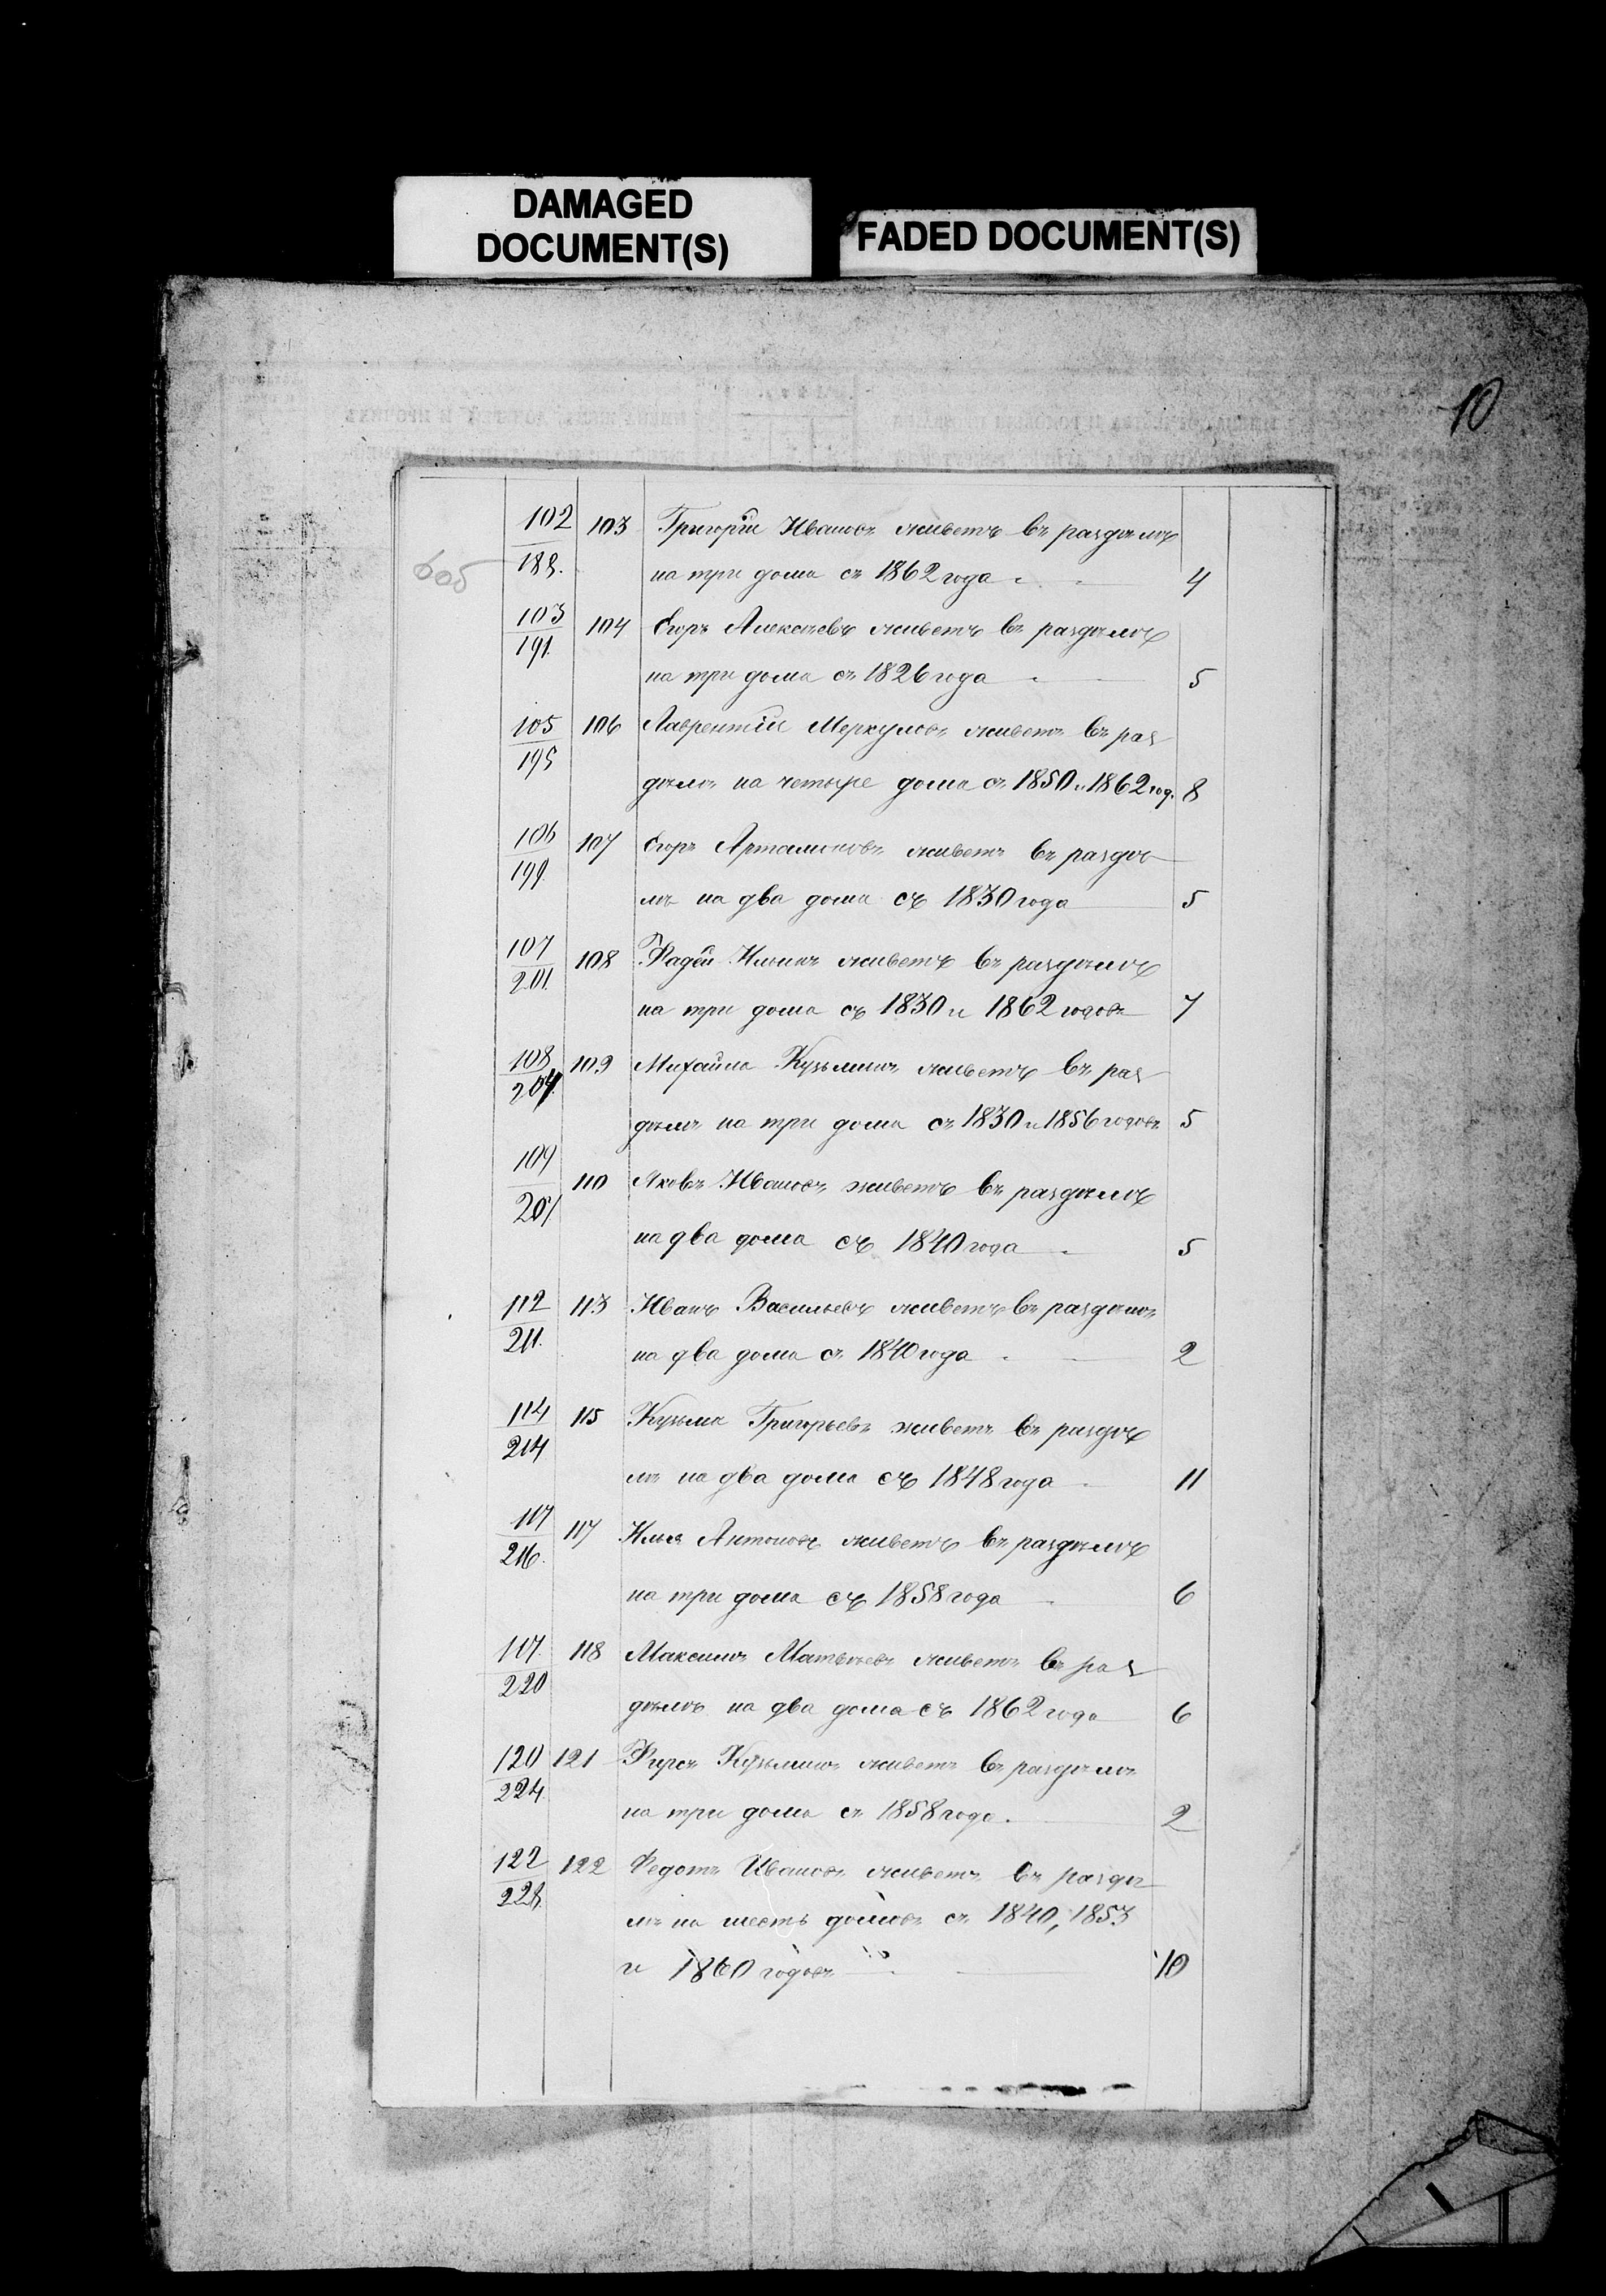 DAMAGED
DOCUMENT(S)
FADED DOCUMENT(S)
10
605
102/188. 103 Григорій Ивановъ живетъ въ раздѣлѣ
на три дома съ 1862 года 4
103/191. 104 Егоръ Алексѣевъ живетъ въ раздѣлѣ
на три дома съ 1826 года 5
105/195 106 Лаврентій Меркуловъ живетъ въ раз
дѣлѣ на четыре дома съ 1850 и 1862 год. 8
106/199. 107 Егоръ Артамоновъ живетъ въ раздѣ
лѣ на два дома съ 1830 года 5
107/201. 108 Фадѣй Ильинъ живетъ въ раздѣлѣ
на три дома съ 1830 и 1862 годовъ 7
108/204. 109 Михайла Кузьминъ живетъ въ раз
дѣлѣ на три дома съ 1830 и 1856 годовъ 5
109/207 110 Яковъ Ивановъ живетъ въ раздѣлѣ
на два дома съ 1840 года 5
112/211. 113 Иванъ Васильевъ живетъ въ раздѣлѣ
на два дома съ 1840 года 2
114/214 115 Кузьма Григорьевъ живетъ въ раздѣ
лѣ на два дома съ 1848 года 11
117/216. 117 Илья Антоновъ живетъ въ раздѣлѣ
на три дома съ 1858 года 6
117./220 118 Максимъ Матвѣевъ живетъ въ раз
дѣлѣ на два дома съ 1862 года 6
120/224. 121 Фирсъ Кузьминъ живетъ въ раздѣлѣ
на три дома съ 1858 года. 2
122/228. 122 Федотъ Ивановъ живетъ въ раздѣ
лѣ на шесть домовъ съ 1840, 1853
и 1860 годовъ 10